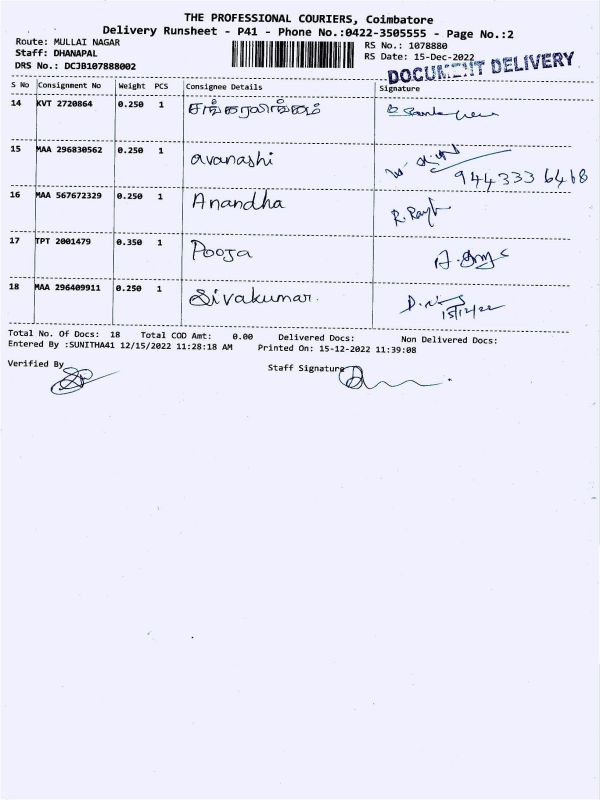 THE PROFESSIONAL COURIERS, Coimbatore
Delivery Runsheet - P41 - Phone No.:0422-3505555 - Page No.:2
Route: MULLAI NAGAR
Staff: DHANAPAL
DRS No.: DCJB107888002
RS No.: 1078880
RS Date: 15-Dec-2022
DOCUMENT DELIVERY
S No Consignment No Weight PCS Consignee Details Signature
14 KVT 2720864 0.250 1 சங்கரலிங்கம்
15 MAA 296830562 0.250 1 avanashi
9443336468
16 MAA 567672329 0.250 1 Anandha
17 TPT 2001479 0.350 1 Pooja
18 MAA 296409911 0.250 1 Sivakumar.
15/12/22
Total No. Of Docs: 18 Total COD Amt: 0.00 Delivered Docs: Non Delivered Docs:
Entered By :SUNITHA41 12/15/2022 11:28:18 AM Printed On: 15-12-2022 11:39:08
Verified By
Staff Signature